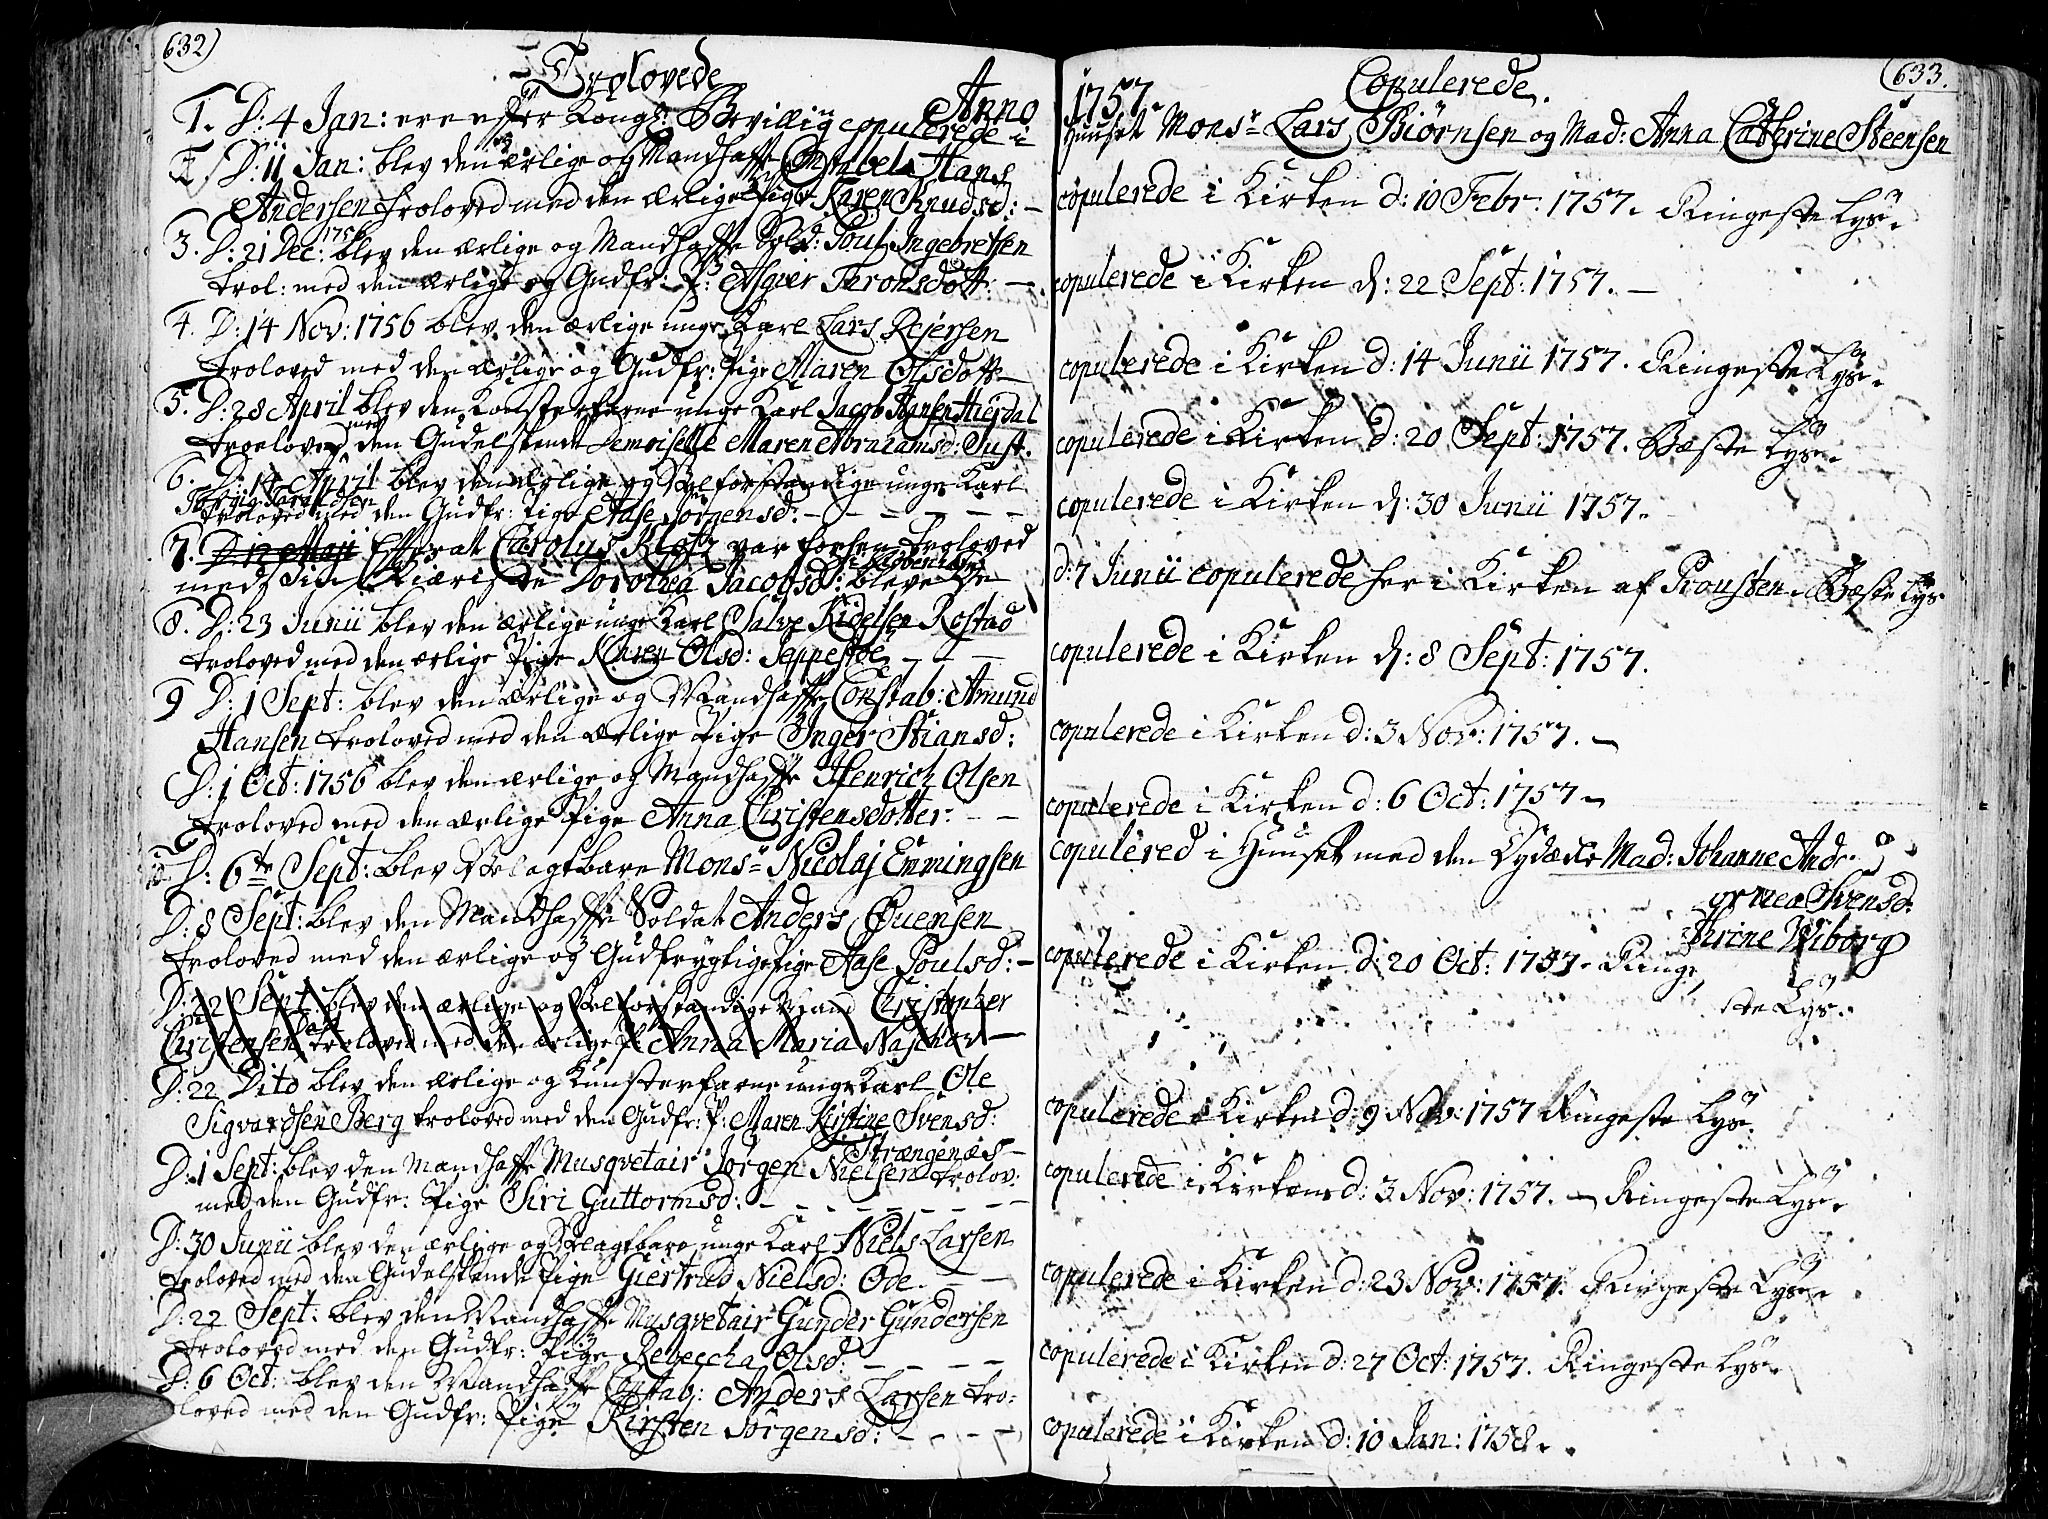 632)
Trolovede
Anno
1. D: 4 Jan: ere efter Kongl: Bevilling copulerede i
2. D: 11 Jan: blev den ærlige og Mandhaffte Constabel Hans
Andersen troloved med den ærlige Pige Karen Knudsd: -
3. D: 21 Dec: 1756 blev den ærlige og Mandhaffte Sold: Poul Ingebretsen
trol: med den ærlige og Gudfr: P: Asgier Teronsdott: -
4. D: 14 Nov: 1756 blev den ærlige unge Karl Lars Rejersen
troloved med den ærlige og Gudfr: Pige Maren Olsdott -
5. D: 28 April blev den Konsterfarne unge Karl Jacob Hansen Hierdal
troeloved med den Gudelskende Demoiselle Maren Abrahamsd: Just.
6. D: 14 April blev den ærlige og Velforstandige unge Karl
troloved med den Gudfr: Pige Aase Jørgensd: - - - - -
7. D 12 Maji Efterat Carolus Klotz var forhen troloved
i Kiøbenhavn
med sin Kiæriste Dorothea Jacobsd: bleve de
8. D: 23 Junii blev den ærlige unge Karl Salve Kidelsen Rostad
troloved med den ærlige Pige Karen Olsd: Seppestøe - - -
9 D: 1 Sept: blev den ærlige og Mandhaffte Constab: Amund
Hansen troloved med den ærlige Pige Inger Stiansd:
D: 1 Oct: 1756 blev den ærlige og Mandhaffte Henrich Olsen
troloved med den ærlige Pige Anna Christensdotter: - -
10. D: 6te Sept: blev Velagtbare Monsr Nicolaj Emmingsen
D: 8 Sept: blev den Mandhaffte Soldat Anders Øuensen
troloved med den ærlige og Gudfrygtige Pige Aase Poulsd: -
D: 22 Sept: blev den ærlige og Velforstandige Mand Christopher
Christensen troloved med den ærlige P: Anna Maria
D: 22 Dito blev den ærlige og Kunsterfarne unge Karl Ole
Sigvardsen Berg troloved med den Gudfr: P: Maren Kirstine Svensd:
Strængenæs -
D: 1 Sept: blev den Mandhaffte Musqvetair Jørgen Nielsen trolov:
med den Gudfr: Pige Siri Guttormsd: - - - - - -
D: 30 Junii blev den ærlige og Velagtbare unge Karl Niels Larsen
troloved med den Gudelskende Pige Giertrud Nielsd: Ode. - -
D: 22 Sept: blev den Mandhaffte Musqvetair Gunder Gundersen
troloved med den Gudfr: Pige Rebeccha Olsd: - - - -
D: 6 Oct: blev den Mandhaffte Constab: Anders Larsen tro:
loved med den Gudfr: Pige Kirsten Jørgensd: - - - -
633.
Copulerede.
1757
Huuset Monsr Lars Biørnsen og Mad: Anna Cathrine Steensen
copulerede i Kirken d: 10 Febr: 1757. Ringeste Lys.
copulerede i Kirken d: 22 Sept: 1757. -
copulerede i Kirken d: 14 Junii 1757. Ringeste Lys.
copulerede i Kirken d: 20 Sept: 1757. Bæste Lys.
copulerede i Kirken d: 30 Junii 1757.
d: 7 Junii copulerede her i Kirken af Prousten. Bæste Lys.
copulerede i Kirken d: 8 Sept: 1757.
copulerede i Kirken d: 3 Nov: 1757. -
copulerede i Kirken d: 6 Oct: 1757 -
copulered i Huuset med den Dydædle Mad: Johanne And
Svensd:
Wiborg
copulerede i Kirken d: 20 Oct: 1757. Ringe,
ste Lys.
copulerede i Kirken d: 9 Nov: 1757 Ringeste Lys.
copulerede i Kirken d: 3 Nov: 1757. - Ringeste Lys.
copulerede i Kirken d: 23 Nov: 1757. Ringeste Lys.
copulerede i Kirken d: 27 Oct: 1757. Ringeste Lys.
copulerede i Kirken d: 10 Jan: 1758.